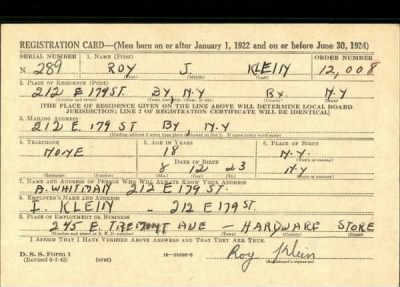 REGISTRATION CARD—(Men born on or after January 1, 1922 and on or before June 30, 1924)
SERIAL NUMBER 1. NAME (Print) ORDER NUMBER
N 289 ROY J KLEIN 12,008
(First) (Middle) (Last)
2. PLACE OF RESIDENCE (Print)
212 E 179 ST. BX, N.Y BX. N.Y
(Number and street) (Town, township, village, or city) (County) (State)
[THE PLACE OF RESIDENCE GIVEN ON THE LINE ABOVE WILL DETERMINE LOCAL BOARD
JURISDICTION; LINE 2 OF REGISTRATION CERTIFICATE WILL BE IDENTICAL]
3. MAILING ADDRESS
212 E. 179 ST BX N.Y
(Mailing address if other than place indicated on line 2. If same insert word same)
4. TELEPHONE 5. AGE IN YEARS 6. PLACE OF BIRTH
NONE 18 N.Y.
DATE OF BIRTH (Town or county)
8 12 23 N.Y
(Exchange) (Number) (Mo.) (Day) (Yr.) (State or country)
7. NAME AND ADDRESS OF PERSON WHO WILL ALWAYS KNOW YOUR ADDRESS
A. WHITMAN 212 E 179 ST.
8. EMPLOYER'S NAME AND ADDRESS
I. KLEIN - 212 E 179 ST.
9. PLACE OF EMPLOYMENT OR BUSINESS
245 E. TREMONT AVE - HARDWARE STORE
(Number and street or R. F. D. number) (Town) (County) (State)
I AFFIRM THAT I HAVE VERIFIED ABOVE ANSWERS AND THAT THEY ARE TRUE.
D. S. S. Form 1
(Revised 6-1-42) (over) Roy Klein
(Registrant's signature)